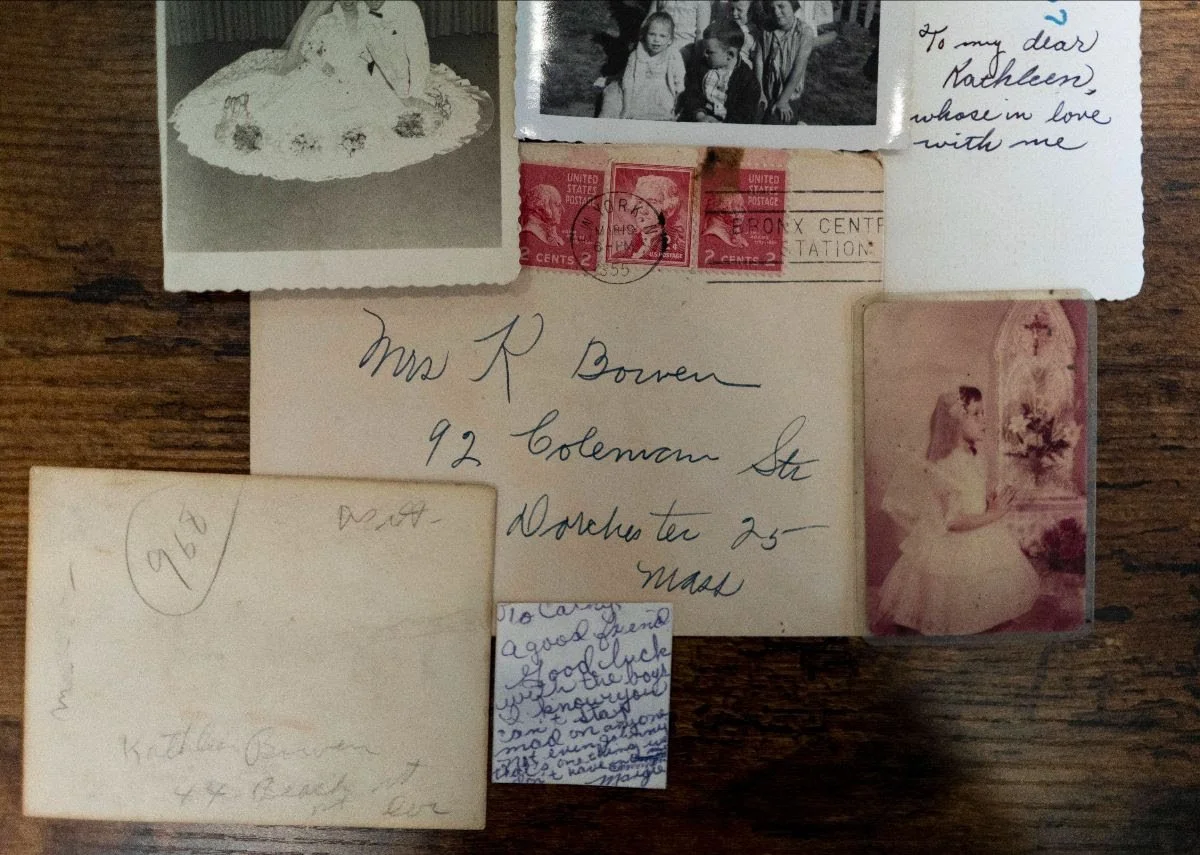 To my dear
Kathleen,
whose in love
with me
UNITED
STATES
POSTAGE
2 CENTS 2
U.S. POSTAGE
UNITED
STATES
POSTAGE
2 CENTS 2
YORK, N
MAR 19
PM
1955
BRONX CENTR
STATION
Mrs K Bowen
92 Coleman Str
Dorchester 25
Mass
968
Kathleen Bowen
44 Beach st
To Cathy
a good friend
Good luck
with the boys
I know you
can't stay
mad on anyone
Not even
that's one thing
have
Margie